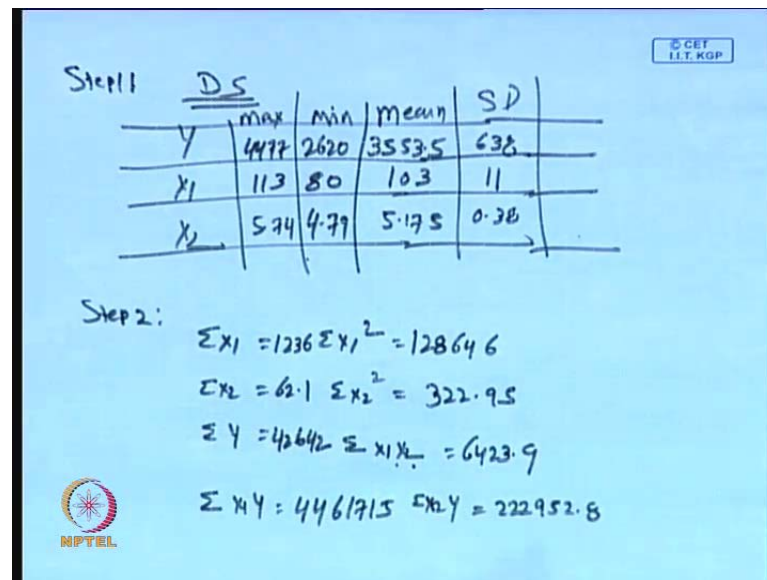 © CET
I.I.T. KGP
Step 1 DS
max min mean SD
Y 4477 2620 3553.5 638
X1 113 80 103 11
X2 5.74 4.79 5.175 0.38
Step 2:
Σx1 = 1236 Σx1² = 128646
Σx2 = 62.1 Σx2² = 322.95
ΣY = 42642 Σx1x2 = 6423.9
Σx1Y = 4461715 Σx2Y = 222952.8
NPTEL